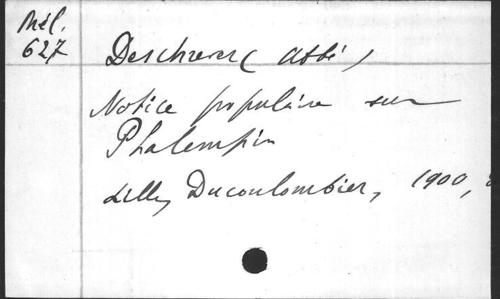 Mél.
627
Deschrever (abbé)
Notice populaire sur
Phalempin
Lille, Ducoulombier, 1900,